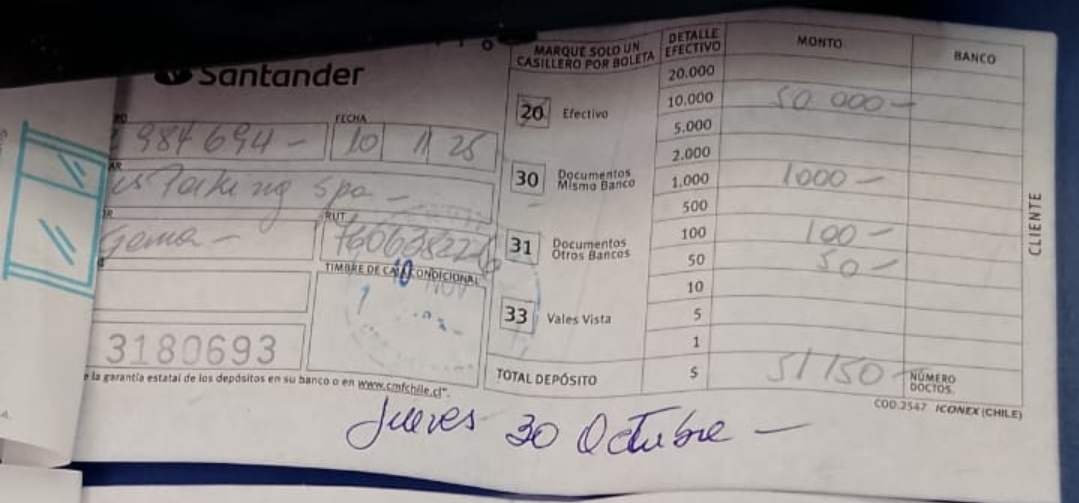 Santander
FECHA
984694-
10 11 25
Parking spa -
Gema -
RUT
TIMBRE DE CAJA CONDICIONAL
3180693
e la garantía estatal de los depósitos en su banco o en www.cmfchile.cl".
MARQUE SOLO UN
CASILLERO POR BOLETA
20 Efectivo
30 Documentos
Mismo Banco
31 Documentos
Otros Bancos
33 Vales Vista
TOTAL DEPÓSITO
DETALLE
EFECTIVO
MONTO
BANCO
20.000
10.000 50 000-
5.000
2.000
1.000 1000-
500
100 100-
50 50-
10
5
1
$ 51150-
NÚMERO
DOCTOS.
COD.2547 ICONEX (CHILE)
CLIENTE
Jueves 30 Octubre -